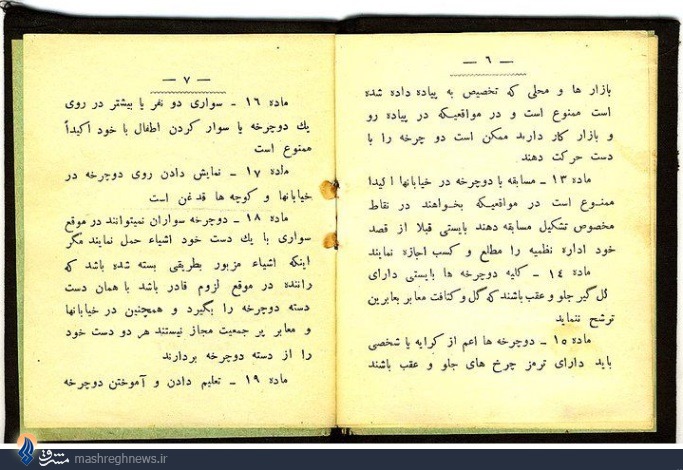 — ۶ —
بازار ها و محلی که تخصیص به پیاده داده شده
است ممنوع است و در مواقعیکه در پیاده رو
و بازار کار دارند ممکن است دو چرخه را با
دست حرکت دهند
ماده ۱۳ ــ مسابقه با دوچرخه در خیابانها اکیدا
ممنوع است در مواقعیکه بخواهند در نقاط
مخصوص تشکیل مسابقه دهند بایستی قبلا از قصد
خود اداره نظمیه را مطلع و کسب اجازه نمایند
ماده ۱۴ ــ کلیه دوچرخه ها بایستی دارای
گل گیر جلو و عقب باشند که گل و کثافت معابر بعابرین
ترشح ننماید
ماده ۱۵ ــ دوچرخه ها اعم از کرایه یا شخصی
باید دارای ترمز چرخ های جلو و عقب باشند
— ۷ —
ماده ۱۶ ــ سواری دو نفر یا بیشتر در روی
یك دوچرخه یا سوار کردن اطفال با خود اکیداً
ممنوع است
ماده ۱۷ ــ نمایش دادن روی دوچرخه در
خیابانها و کوچه ها قدغن است
ماده ۱۸ ــ دوچرخه سواران نمیتوانند در موقع
سواری با یك دست خود اشیاء حمل نمایند مگر
اینکه اشیاء مزبور بطریقی بسته شده باشد که
راننده در موقع لزوم قادر باشد با همان دست
دسته دوچرخه را بگیرد و همچنین در خیابانها
و معابر پر جمعیت مجاز نیستند هر دو دست خود
را از دسته دوچرخه بردارند
ماده ۱۹ ــ تعلیم دادن و آموختن دوچرخه
مشرق mashreghnews.ir